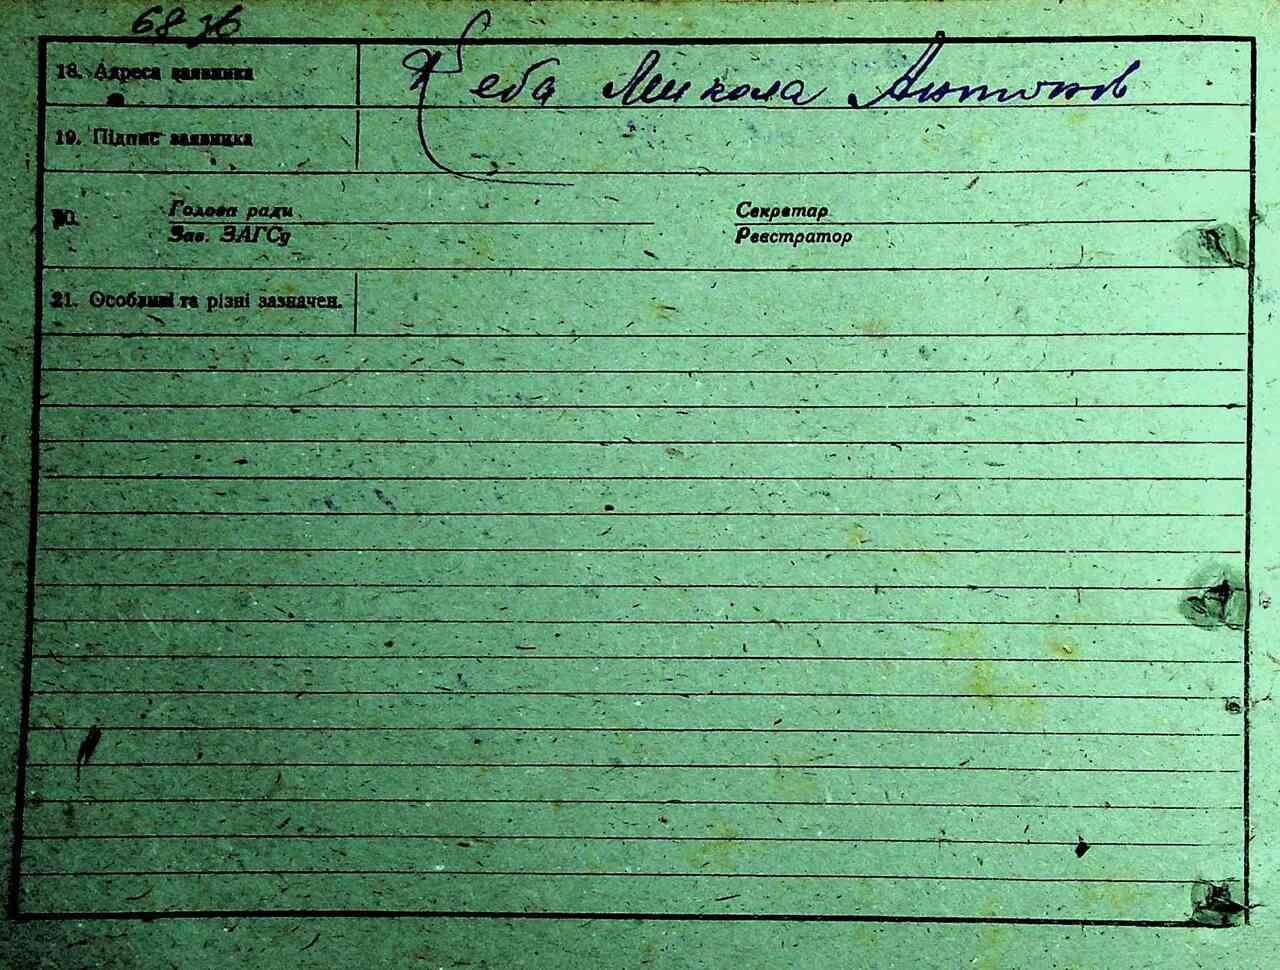 68 зв
18. Адреса заявника
Кеба Микола Антонов
19. Підпис заявника
20.
Голова ради
Секретар
Зав. ЗАГСу
Реєстратор
21. Особливі та різні зазначен.